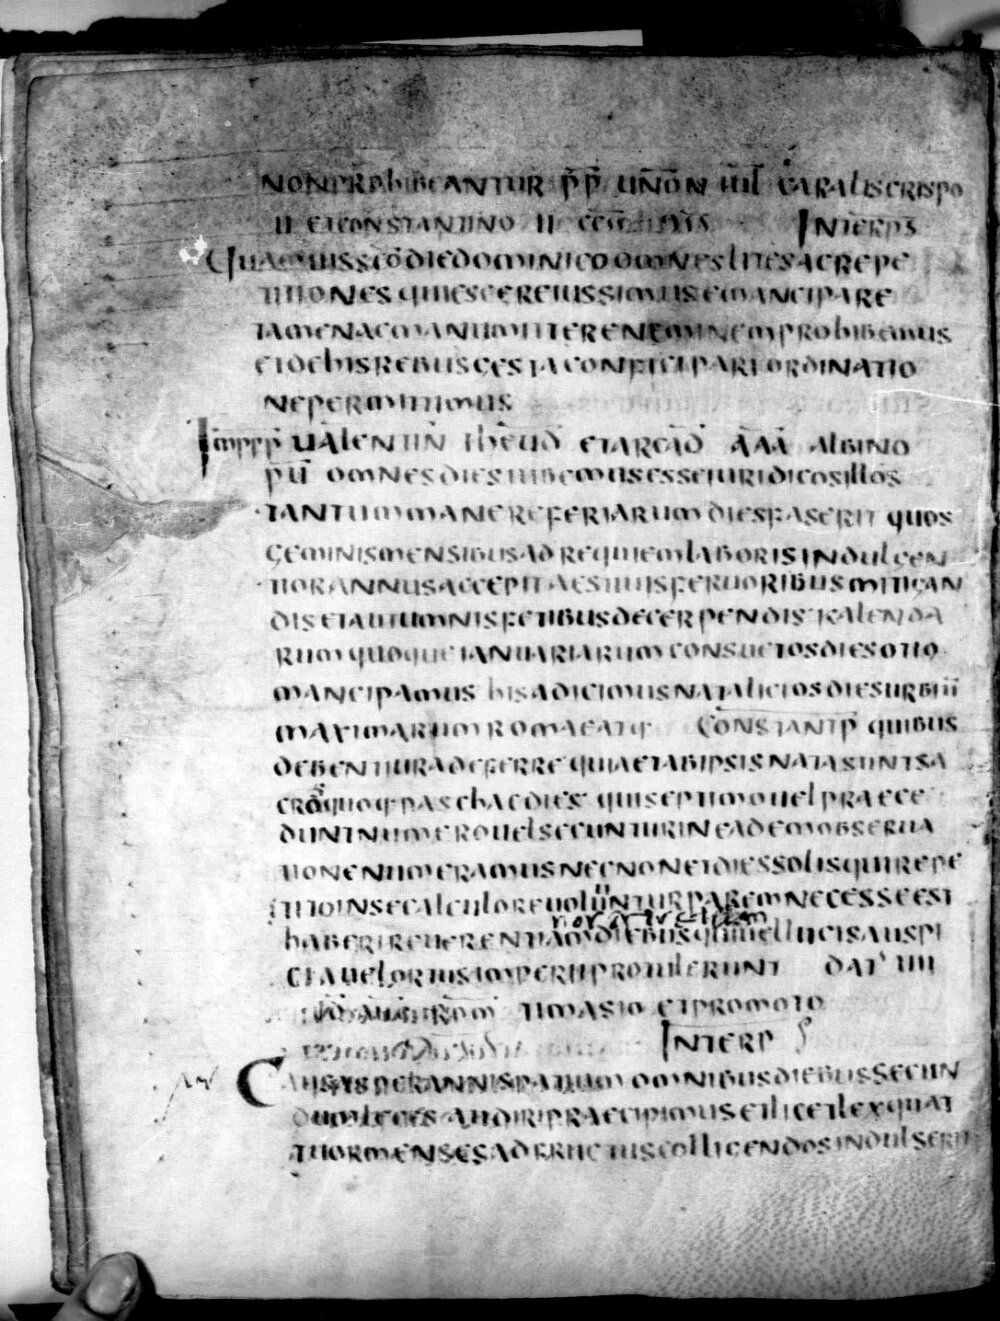 NONPROhIbEANTUR P̄P̄ UN̄ON̄ IIII CARALIS CRISPO
II ETCONSTANTINO II INTERPS
QUAMUISSC̄ODIEDOMINICOOMNESLITESACREPE
TITIONESQUIESCEREIUSSIMUSEMANCIPARE
TAMENACMANUMITTERENEMINEMPROhIbEMUS
ETDEhISREbUSGESTACONFICIPARIORDINATIO
NEPERMITTIMUS
IMPPP̄ UALENTIN̄ ThEUD̄ ETARCAD̄ ĀĀĀ ALbINO
PŪ OMNESDIESIUbEMUSESSEIURIDICOSILLOS
TANTUMMANEREFERIARUMDIESFASERIT QUOS
GEMINISMENSIbUSADREQUIEMLAbORISINDULGEN
TIORANNUSACCEPITAESTIUISFERUORIbUSMITIGAN
DISETAUTUMNISFETIbUSDECERPENDIS KALENDA
RUMQUOQUEIANUARIARUMCONSUETOSDIESOTIO
MANCIPAMUS hISADICIMUSNATALICIOSDIESURbIŪ
MAXIMARUMROMAEATQ CONSTANTP̄ QUIbUS
DEbENTIURADEFERRE QUIAETAbIPSISNATASUNTSA
CROSQUOQPASChAEDIES QUISEPTIMOUELPRAECE
DUNTNUMEROUELSECUNTURINEADEMObSERUA
TIONENUMERAMUSNECNONETDIESSOLISQUIREPE
TITOINSECALCULOREUOLUUNTURPAREMNECESSEEST
nor
hAbERIREUERENTIAMDIEbUSQUIUELLUCISAUSPI
CIAUELORTUSIMPERIIPROTULERUNT DAT IIII
ROM̄ TIMASIO ETPROMOTO
INTERP
CAUSASPERANNISPATIUMOMNIbUSDIEbUSSECUN
DUMLEGESAUDIRIPRAECIPIMUSETLICETLEXQUAT
TUORMENSESADFRUCTUSCOLLIGENDOSINDULSERIT